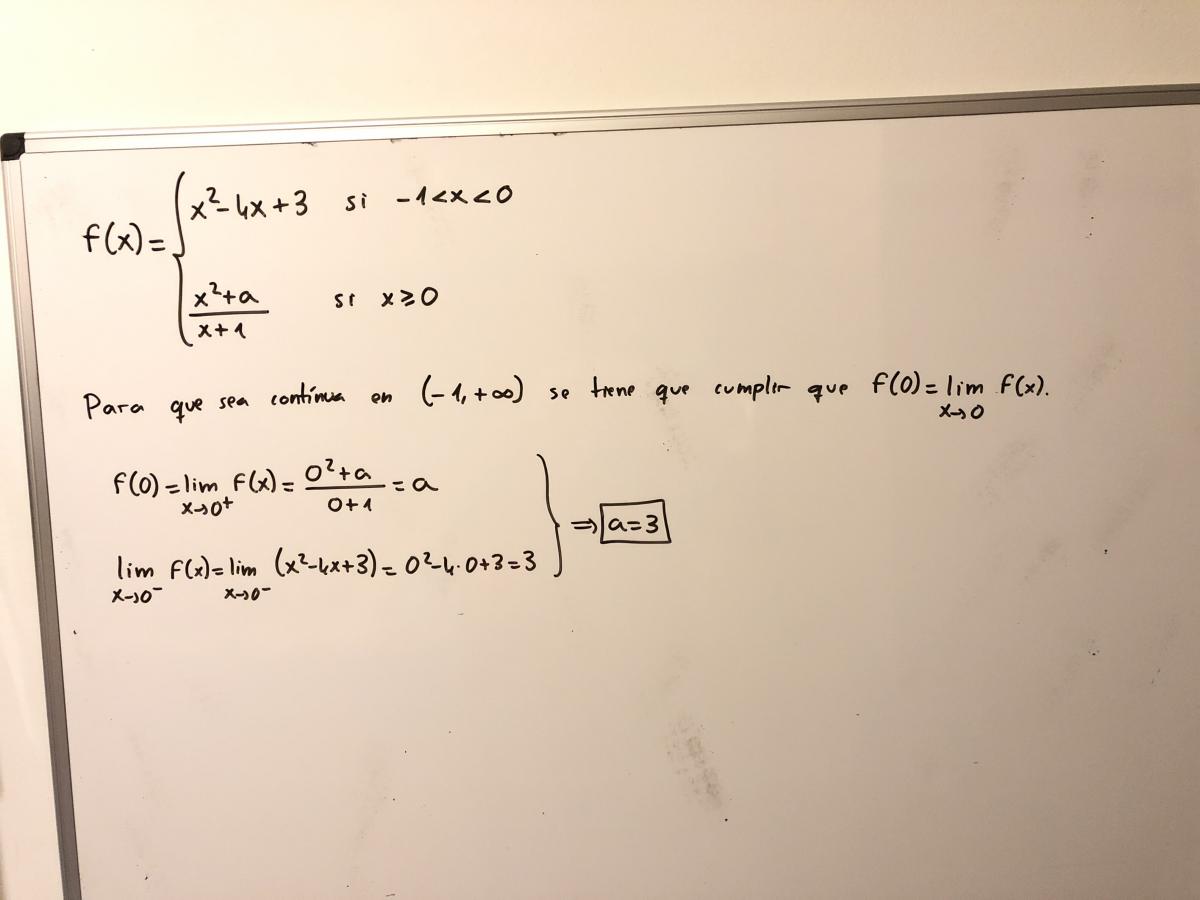 f(x) = { x² - 4x + 3 si -1 < x < 0
(x² + a)/(x + 1) si x ≥ 0
Para que sea contínua en (-1, +∞) se tiene que cumplir que f(0) = lim x→0 f(x).
f(0) = lim x→0⁺ f(x) = (0² + a)/(0 + 1) = a
} ⇒ a = 3
lim x→0⁻ f(x) = lim x→0⁻ (x² - 4x + 3) = 0² - 4·0 + 3 = 3